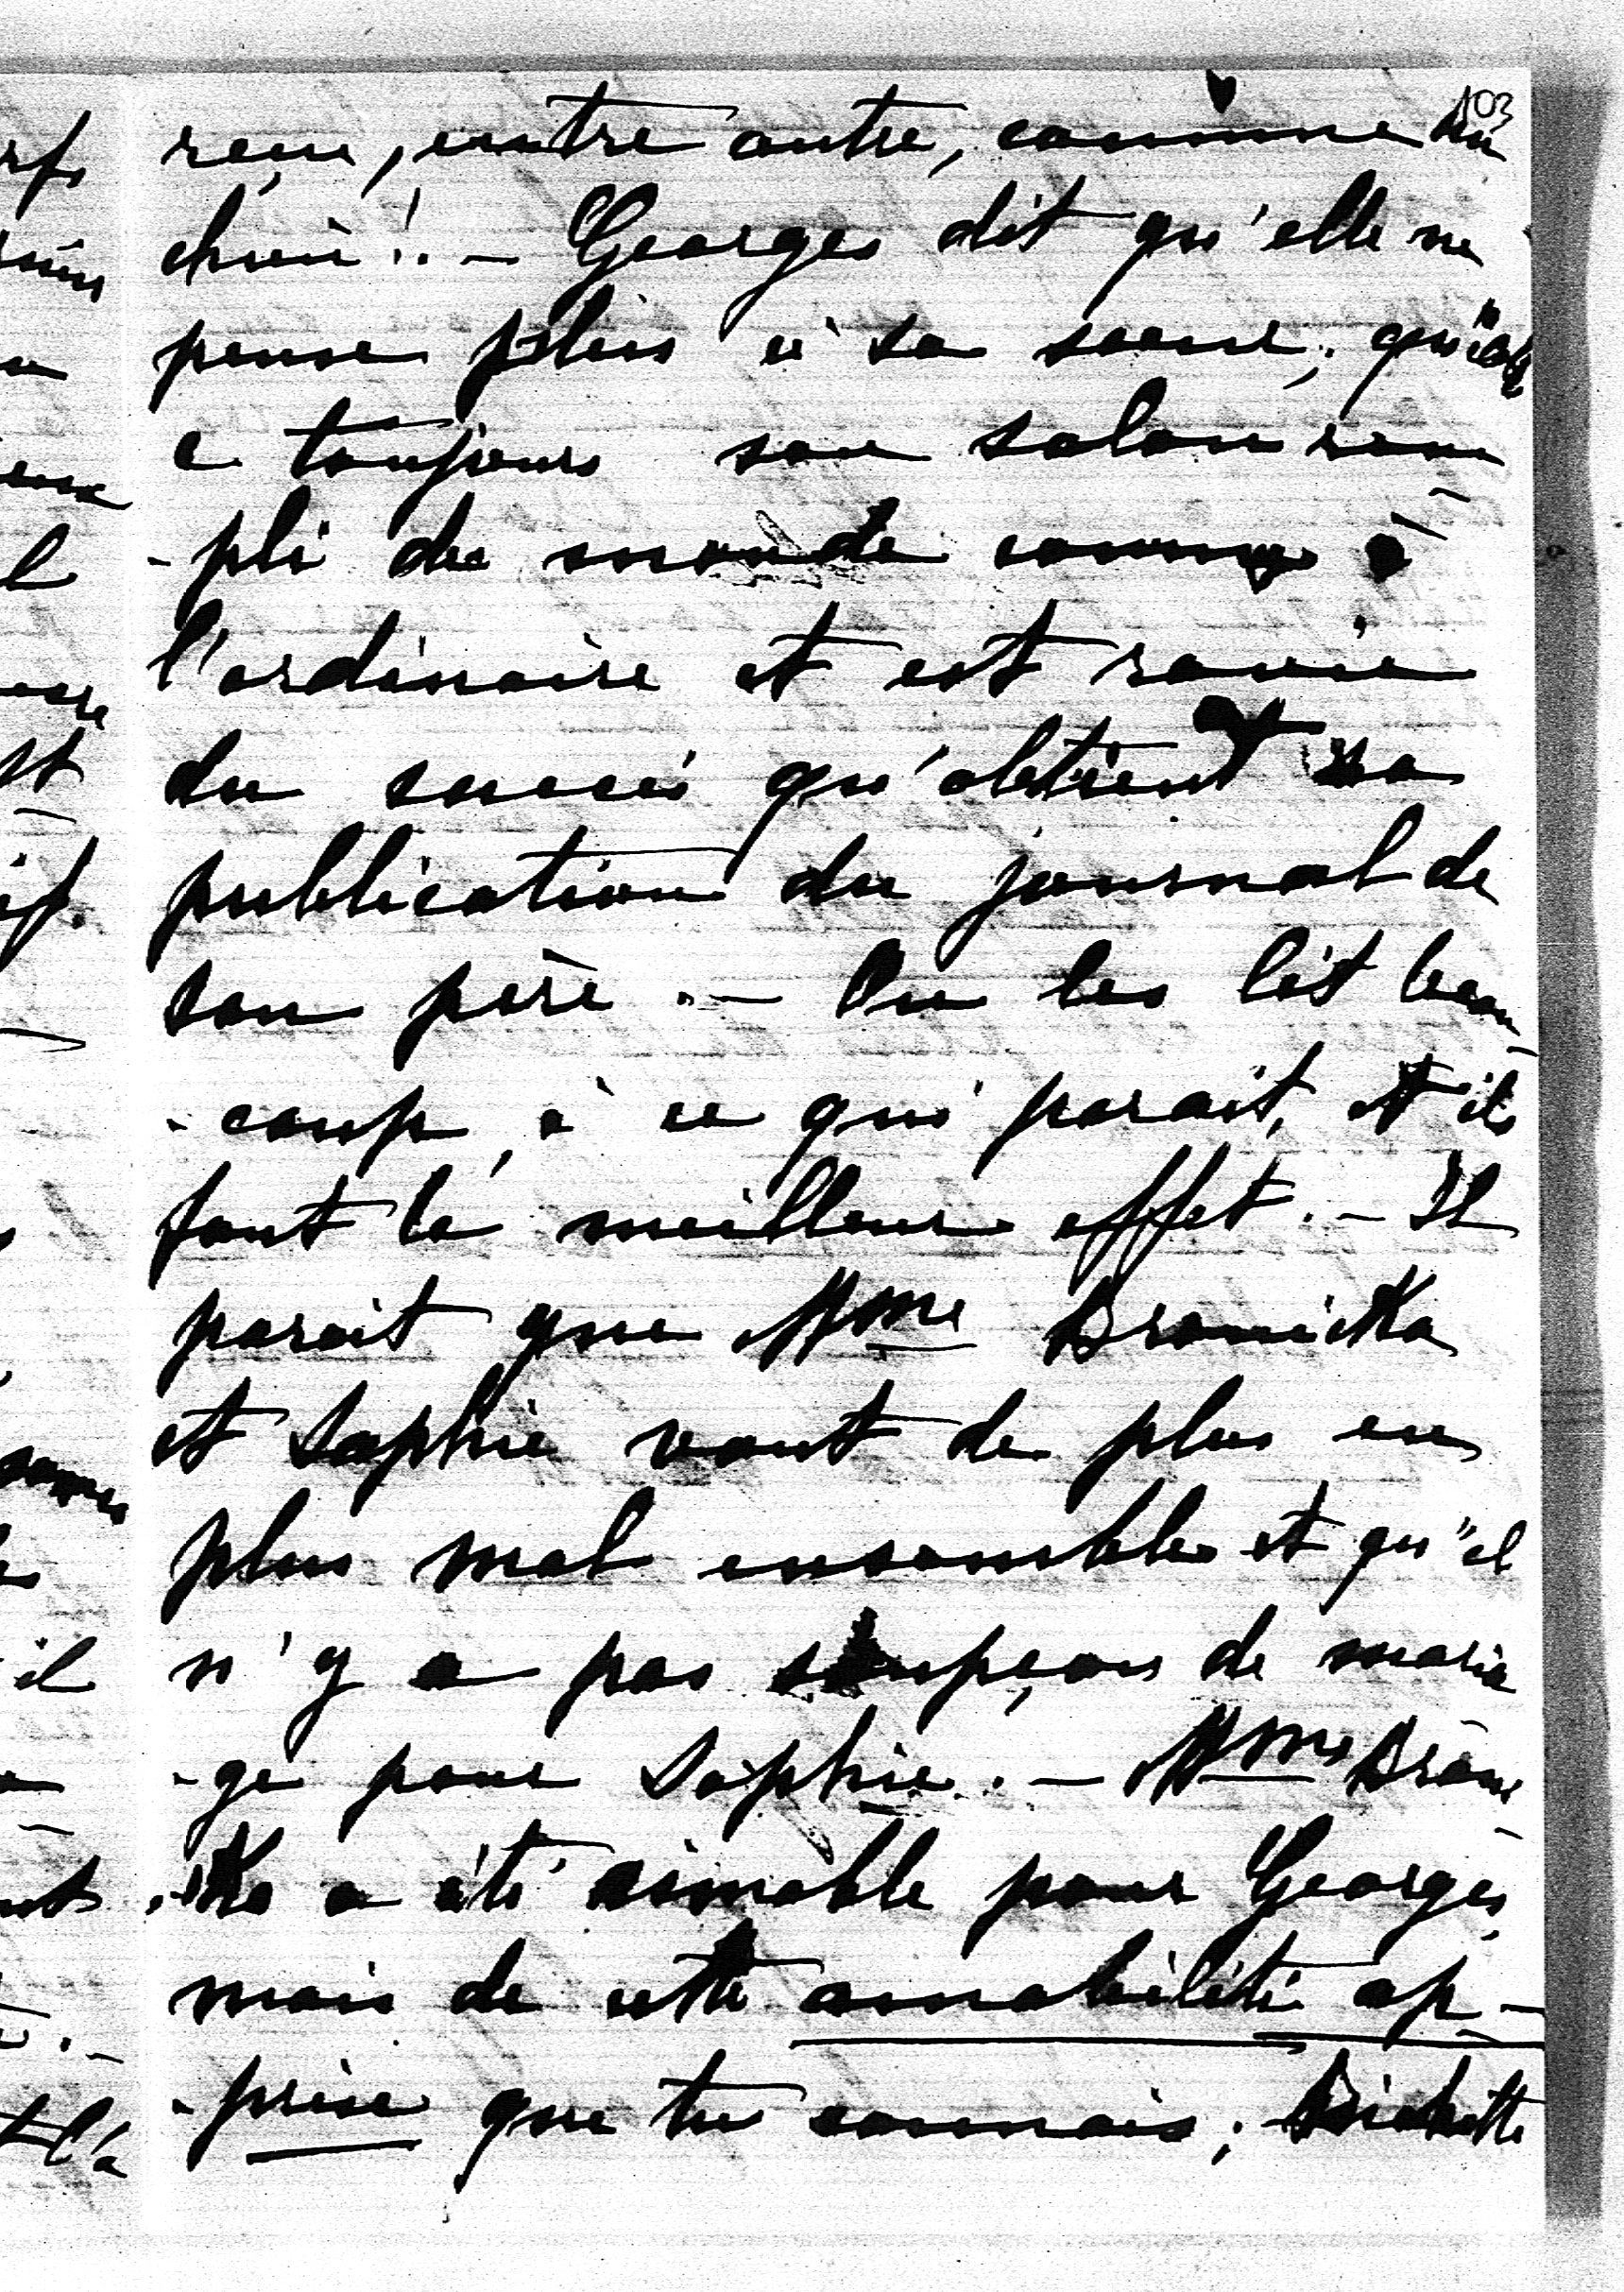 103
reçu, entre autre, comme un
chien!. — Georges dit qu'elle ne
pense plus à sa soeur; qu'elle
a toujours son salon rem
-pli de monde comme à
l'ordinaire et est ravie
du succès qu'obtient sa
publication du journal de
son père. — On les lit beau-
-coup, à ce qui parait, et ils
font le meilleur effet. — Il
parait que Mme Branicka
et Sophie vont de plus en
plus mal ensembles et qu'il
n'y a pas soupçons de maria
-ge pour Sophie. — Mme Brani-
-cka a été aimable pour Georges,
mais de cette amabilité ap-
-prise que tu connais; Bichette